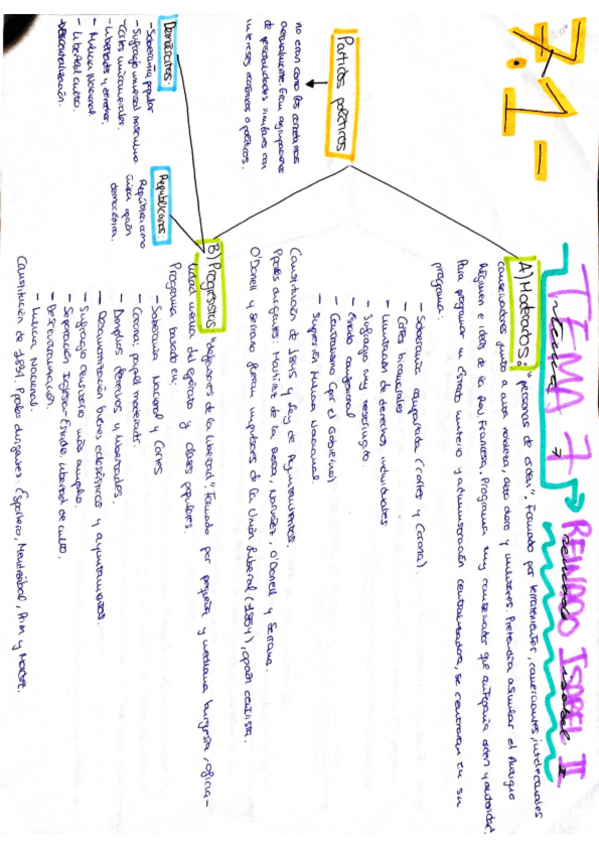 7.1-
TEMA 7 → REINADO ISABEL II
Partidos políticos
no eran como los
actualmente. Eran agrupaciones
de personalidades similares con
intereses económicos o políticos.
A) Moderados: "personas de orden". Formado por terratenientes, comerciantes, intelectuales
conservadores junto a alta nobleza, alto clero y militares. Pretendía asimilar el Antiguo
Régimen e ideas de la Rev. Francesa. Programa muy conservador que anteponía orden y autoridad.
Para programar un Estado unitario y administración centralizadora, se centraron en su
programa:
- Soberanía compartida (Cortes y Corona).
- Cortes bicamerales
- Limitación de derechos individuales
- Sufragio muy restringido.
- Estado confesional
- Centralismo (por el Gobierno)
- Supresión Milicia Nacional.
Constitución de 1845 y Ley de Ayuntamientos.
Ppales dirigentes: Martínez de la Rosa, Narváez, O'Donell y Serrano.
O'Donell y Serrano fueron impulsores de la Unión Liberal (1854), opción centrista.
B) Progresistas: "defensores de la libertad". Formado por pequeña y mediana burguesía, oficia-
lidad media del ejército y clases populares.
Programa basado en:
- Soberanía Nacional y Cortes
- Corona: papel moderador.
- Amplios derechos y libertades.
- Desamortización bienes eclesiásticos y ayuntamientos.
- Sufragio censitario más amplio.
- Separación Iglesia-Estado, libertad de culto.
- Descentralización.
- Milicia Nacional.
Constitución de 1837. Ppales dirigentes: Espartero, Mendizábal, Prim y Madoz.
Demócratas:
- Soberanía popular
- Sufragio universal masculino
- Cortes unicamerales.
- Libertades y derechos.
- Milicia Nacional
- Libertad culto.
- Descentralización.
Republicanos:
República como
única opción
democrática.